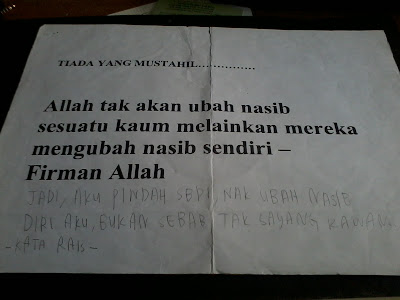 TIADA YANG MUSTAHIL..............
Allah tak akan ubah nasib
sesuatu kaum melainkan mereka
mengubah nasib sendiri –
Firman Allah
JADI, AKU PINDAH SEPI, NAK UBAH NASIB
DIRI AKU, BUKAN SEBAB TAK SAYANG
-KATA RAIS-